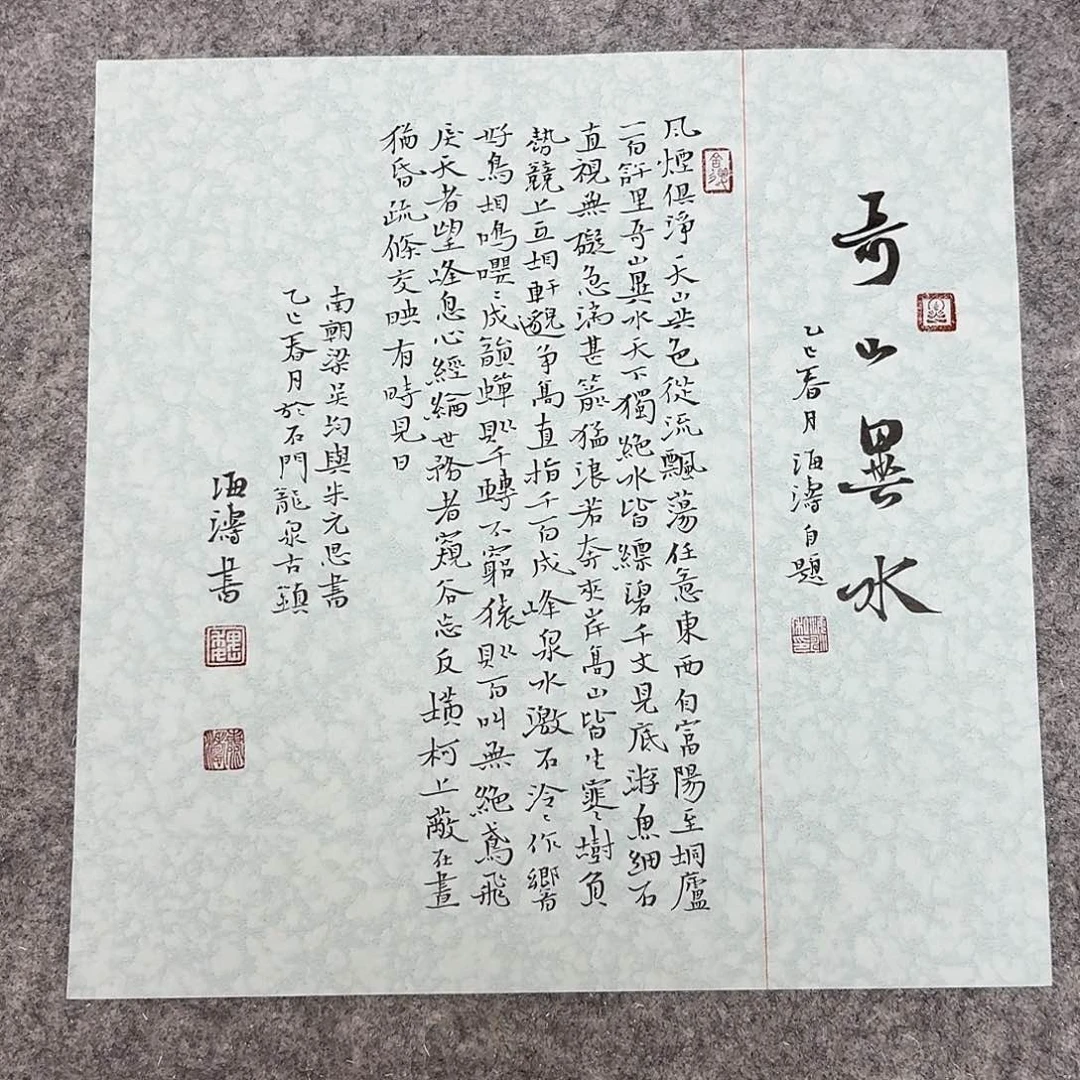 奇山異水
乙巳春月 海濤自題
風煙俱淨天山共色從流飄蕩任意東西自富陽至桐廬
一百許里奇山異水天下獨絕水皆縹碧千丈見底游魚細石
直視無礙急湍甚箭猛浪若奔夾岸高山皆生寒樹負
勢競上互相軒邈爭高直指千百成峰泉水激石泠々作響
好鳥相鳴嚶々成韻蟬則千轉不窮猿則百叫無絕鳶飛
戾天者望峰息心經綸世務者窺谷忘反橫柯上蔽在晝
猶昏疏條交映有時見日
南朝梁吳均與朱元思書
乙巳春月於石門龍泉古鎮
海濤書